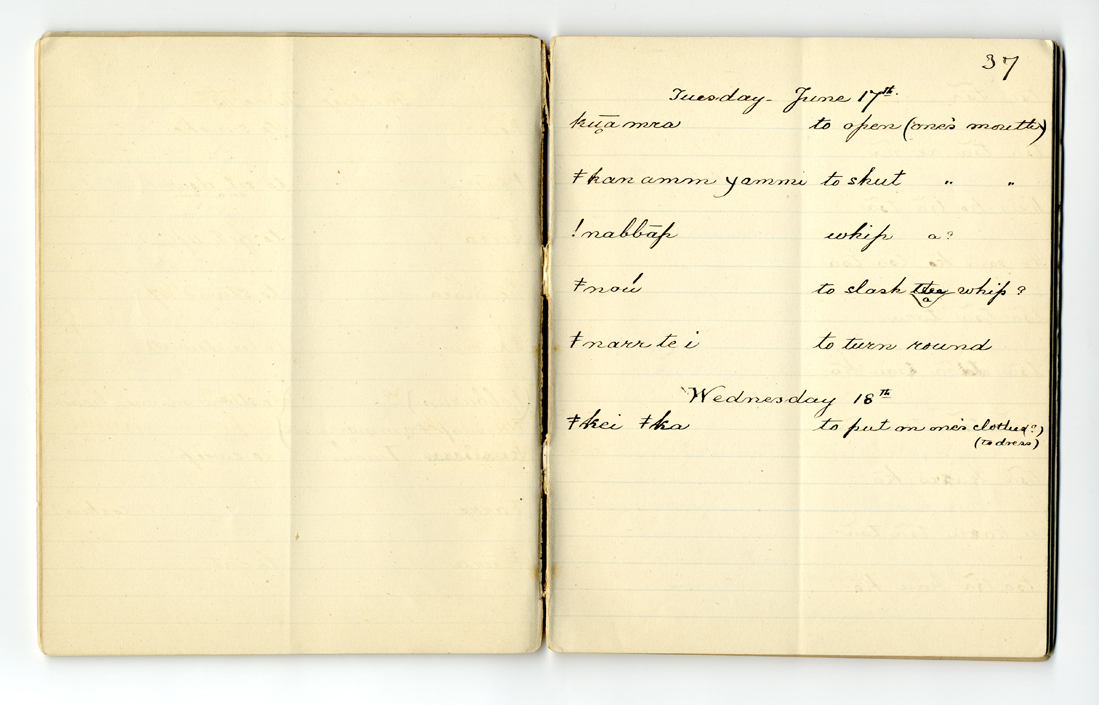 37
Tuesday - June 17th.
kṵā mra to open (one's mouth)
ǂkanamm yammi to shut " "
!nabbāp whip a?
ǂnoú to slash the a whip?
ǂnarr te i to turn round
Wednesday 18th
ǂkei ǂka to put on one's clothes(?)
(to dress)